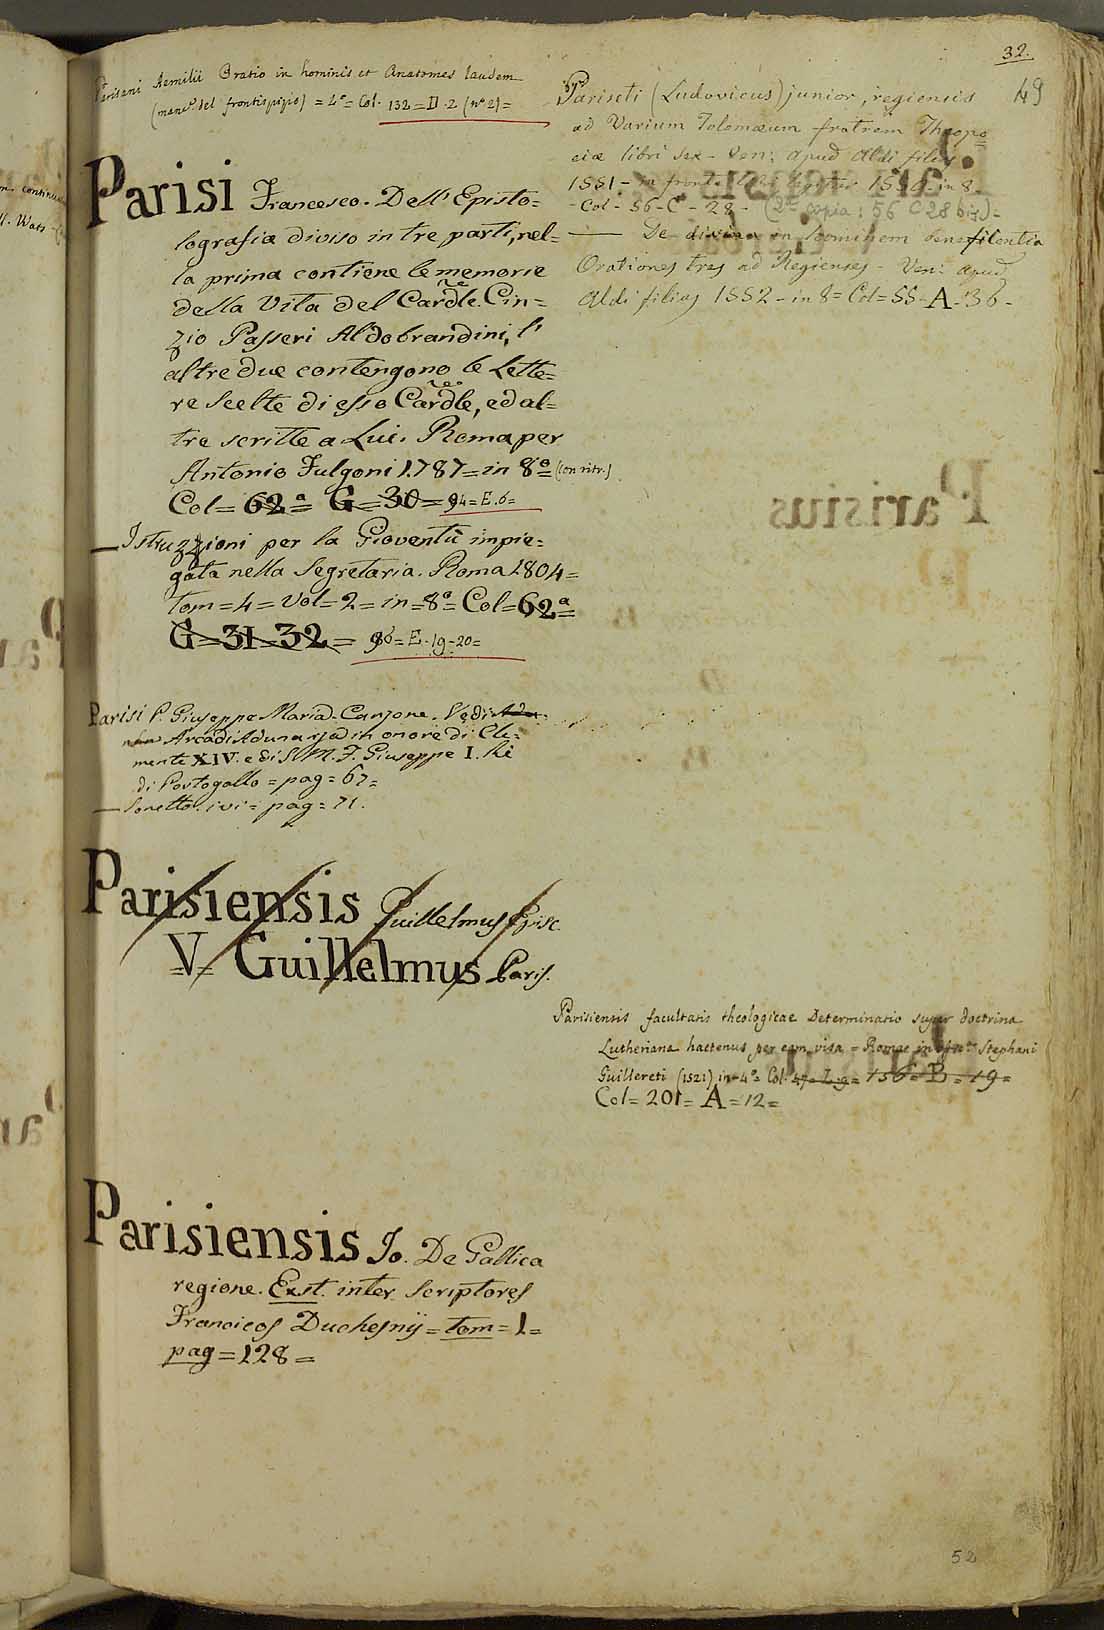 32.
49
Parisani Aemilii Oratio in hominis et Anatomes laudem
(manca del frontispizio) = 4° = Col. 132 = D. 2 (n° 2) =
Parisi Francesco. Dell' Episto=
lografia diviso in tre parti, nel=
la prima contiene le memorie
della Vita del Cardle. Cin=
zio Passeri Aldobrandini, l'
altre due contengono le Lette=
re scelte di esso Cardle, ed al=
tre scritte a Lui. Roma per
Antonio Fulgoni 1787 = in 8° = (con ritr.)
Col = 62ª = G = 30 = 94 = E. 6 =
— Istruzzioni per la Gioventù impie=
gata nella Segretaria. Roma 1804 =
tom = 4 = Vol = 2 = in = 8° = Col = 62ª =
G = 31 = 32 = 96 = E. 19 = 20 =
Parisi P. Giuseppe Maria. Canzone. Vedi
Arcadi Adunanza in onore di Cle=
mente XIV. e di S. M. F. Giuseppe I. Rè
di Portogallo = pag = 67 =
— Sonetto. ivi = pag = 71.
Parisiensis Guillelmus Episc.
=V= Guillelmus Paris.
Parisiensis Jo. De Gallica
regione. Exst. inter Scriptores
Francicos Duchesnij = tom = 1 =
pag = 128 =
Pariseti (Ludovicus) junior, regiensis
ad Varium Tolomæum fratrem Theopo=
eiæ libri sex - Ven: apud Aldi filios
1551 - in fronte 1550 - in 8 -
- Col - 56 - C - 28 - (2ª copia: 56 C 28 bis) =
— De divina in hominem benefilentia
Orationes tres ad Regienses - Ven: apud
Aldi filios 1552 - in 8 = Col = 55 - A - 36 -
Parisiensis facultatis theologicae Determinatio super doctrina
Lutheriana hactenus per eam visa = Romae in Stephani
Guillereti (1521) in 4° = Col. = 156 = B = 19 =
Col = 201 = A = 12 =
52